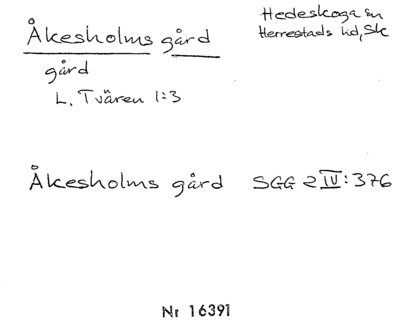 Åkesholms gård
Hedeskoga sn
Herrestads hd, Sk
gård
L. Tvären 1:3
Åkesholms gård SGG 2 IV: 376
Nr 16391